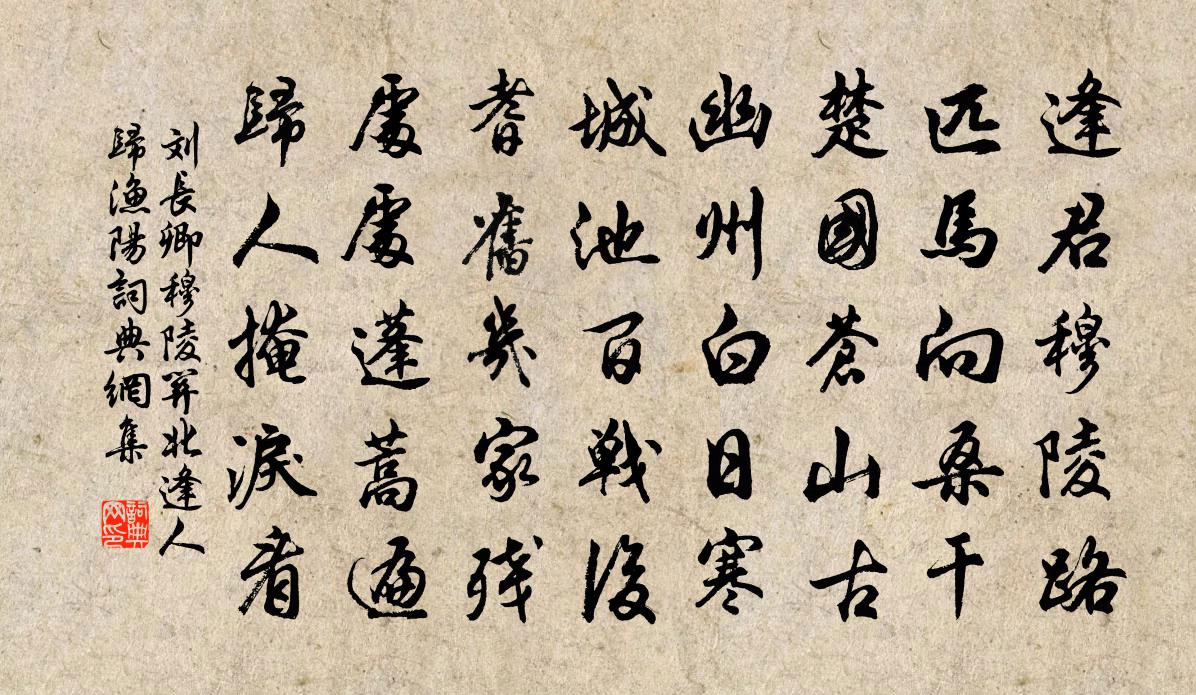 逢君穆陵路
匹馬向桑干
楚國蒼山古
幽州白日寒
城池百戦後
耆舊幾家残
處處蓬蒿遍
歸人掩淚看
刘長卿穆陵關北逢人
歸漁陽詞典網集
詞典
网印